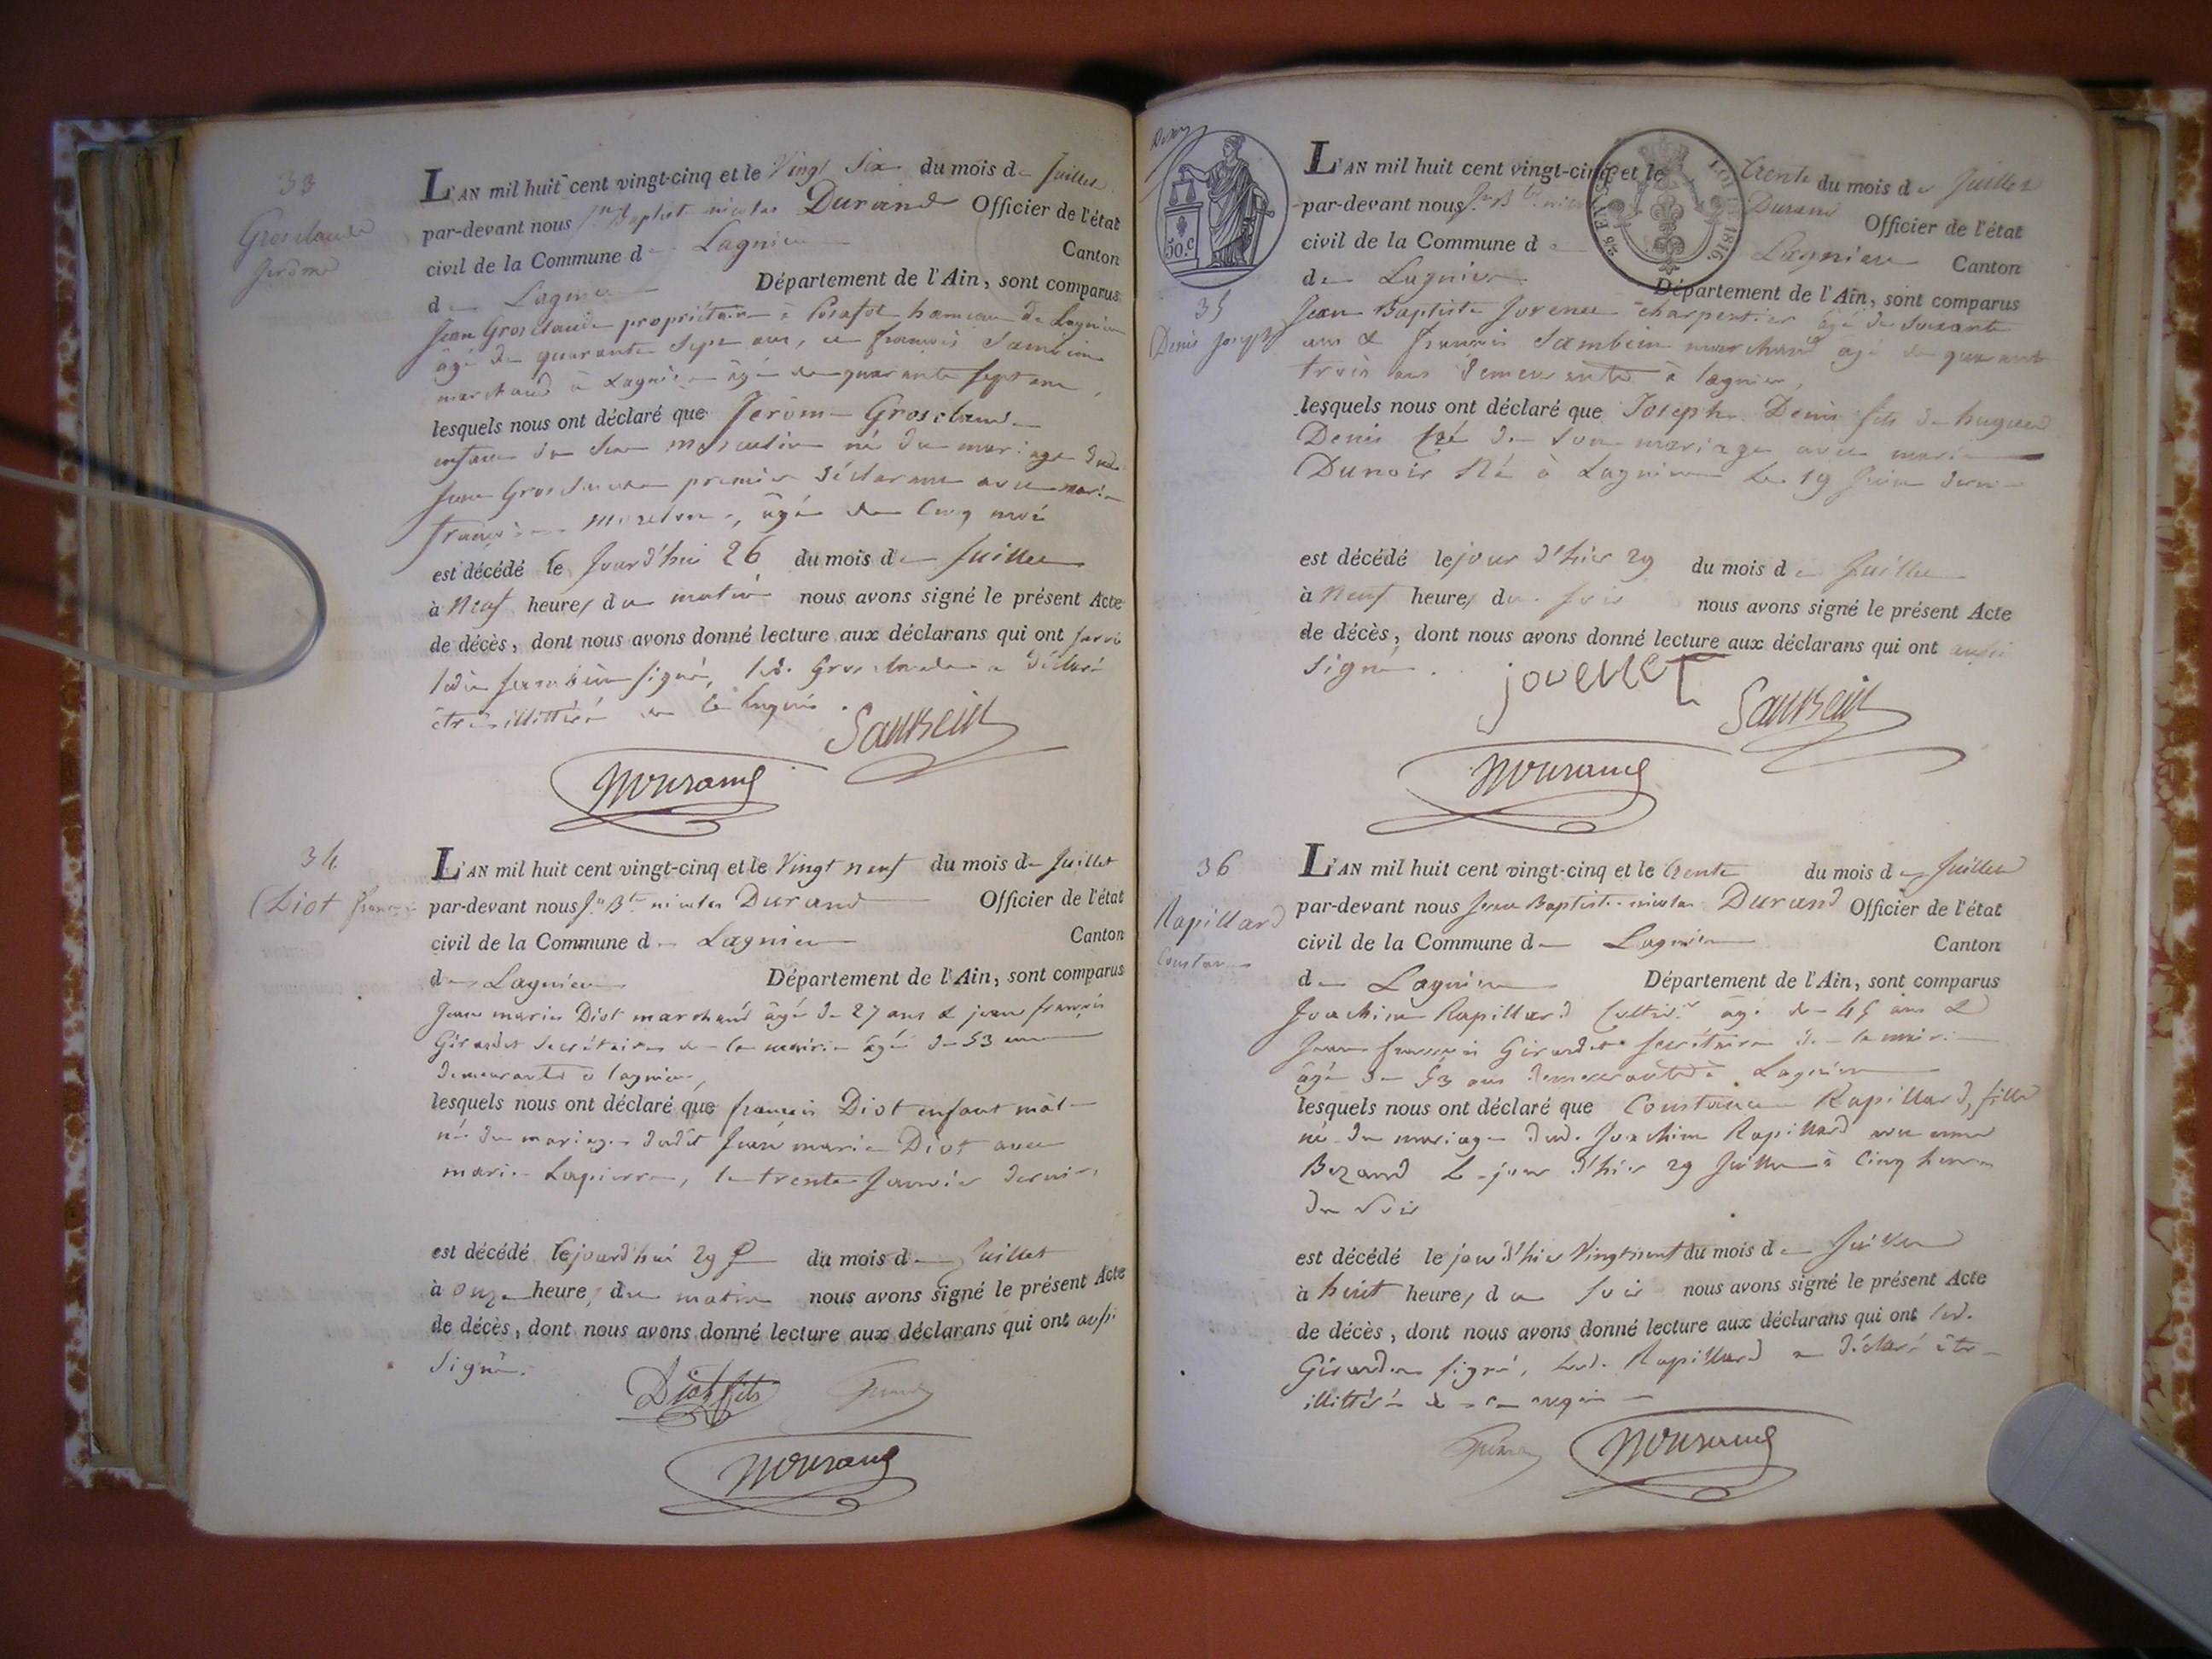 33
Grosclaude
Jerôme
L'AN mil huit cent vingt-cinq et le Vingt Six du mois de Juillet
par-devant nous Jn Baptiste nicolas Durand Officier de l'état
civil de la Commune de Lagnieu Canton
de Lagnieu Département de l'Ain, sont comparus
Jean Grosclaude propriétaire à Posafol hameau de Lagnieu
âgé de quarante Sept ans, et françois Sambein
marchand à Lagnieu âgé de quarante sept ans,
lesquels nous ont déclaré que Jerôme Grosclaude
enfant du sexe masculin né du mariage dud.
Jean Grosclaude premier déclarant avec marie
françoise , âgé de Cinq mois
est décédé le Jourd'hui 26 du mois de Juillet
à Neuf heures du matin nous avons signé le présent Acte
de décès, dont nous avons donné lecture aux déclarans qui ont savoir
ledit Sambein signé, led. Grosclaude a déclaré
être illittéré de ce enquis.
Sambein
Durand
34
Diot françois
L'AN mil huit cent vingt-cinq et le Vingt neuf du mois de Juillet
par-devant nous Jn Bte nicolas Durand Officier de l'état
civil de la Commune de Lagnieu Canton
de Lagnieu Département de l'Ain, sont comparus
Jean marie Diot marchand âgé de 27 ans & jean françois
Girardet Secrétaire de la mairie âgé de 53 ans
demeurants à lagnieu,
lesquels nous ont déclaré que françois Diot enfant mâle
né du mariage dudit Jean marie Diot avec
marie Lapierre, le trente Janvier dernier,
est décédé le jourd'hui 29 du mois de Juillet
à onze heures du matin nous avons signé le présent Acte
de décès, dont nous avons donné lecture aux déclarans qui ont aussi
signé.
Diot fils
Durand
Denis
50.c
LOI DE 1816
35
Denis Joseph
L'AN mil huit cent vingt-cinq et le trente du mois de Juillet
par-devant nous Jn Bte nicolas Durand Officier de l'état
civil de la Commune de Lagnieu Canton
de Lagnieu Département de l'Ain, sont comparus
Jean Baptiste charpentier âgé de soixante
ans & françois Sambein marchand âgé de quarante
trois ans demeurants à lagnieu,
lesquels nous ont déclaré que Joseph Denis fils de hugues
Denis et de son mariage avec marie
Dunoir Né à Lagnieu le 19 Juin dernier
est décédé le jour d'hier 29 du mois de Juillet
à Neuf heures du soir nous avons signé le présent Acte
de décès, dont nous avons donné lecture aux déclarans qui ont aussi
signé.
Sambein
Durand
36
Rapillard
Constance
L'AN mil huit cent vingt-cinq et le trente du mois de Juillet
par-devant nous Jean Baptiste nicolas Durand Officier de l'état
civil de la Commune de Lagnieu Canton
de Lagnieu Département de l'Ain, sont comparus
Joachim Rapillard Cultivr âgé de 45 ans &
Jean françois Girardet Secrétaire de la mairie
âgé de 53 ans demeurants à Lagnieu
lesquels nous ont déclaré que Constance Rapillard, fille
né du mariage dud. Joachim Rapillard avec anne
Bezand le jour d'hier 29 Juillet à Cinq heures
du Soir
est décédé le jour d'hier Vingt neuf du mois de Juillet
à huit heures du soir nous avons signé le présent Acte
de décès, dont nous avons donné lecture aux déclarans qui ont led.
Girardet signé, led. Rapillard a déclaré être
illittéré de ce enquis
Durand